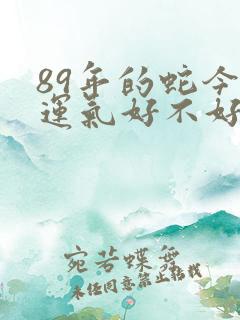 89年的蛇今
運氣好不好
宛若蝶舞
未经同意禁止转载